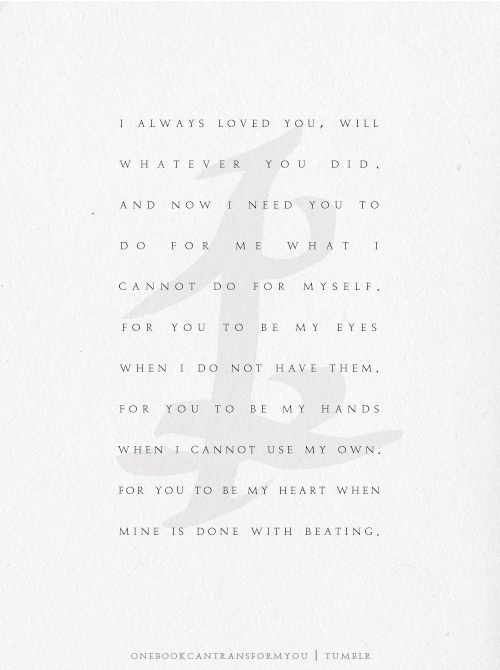 I ALWAYS LOVED YOU, WILL
WHATEVER YOU DID.
AND NOW I NEED YOU TO
DO FOR ME WHAT I
CANNOT DO FOR MYSELF.
FOR YOU TO BE MY EYES
WHEN I DO NOT HAVE THEM.
FOR YOU TO BE MY HANDS
WHEN I CANNOT USE MY OWN.
FOR YOU TO BE MY HEART WHEN
MINE IS DONE WITH BEATING.
ONEBOOKCANTRANSFORMYOU | TUMBLR